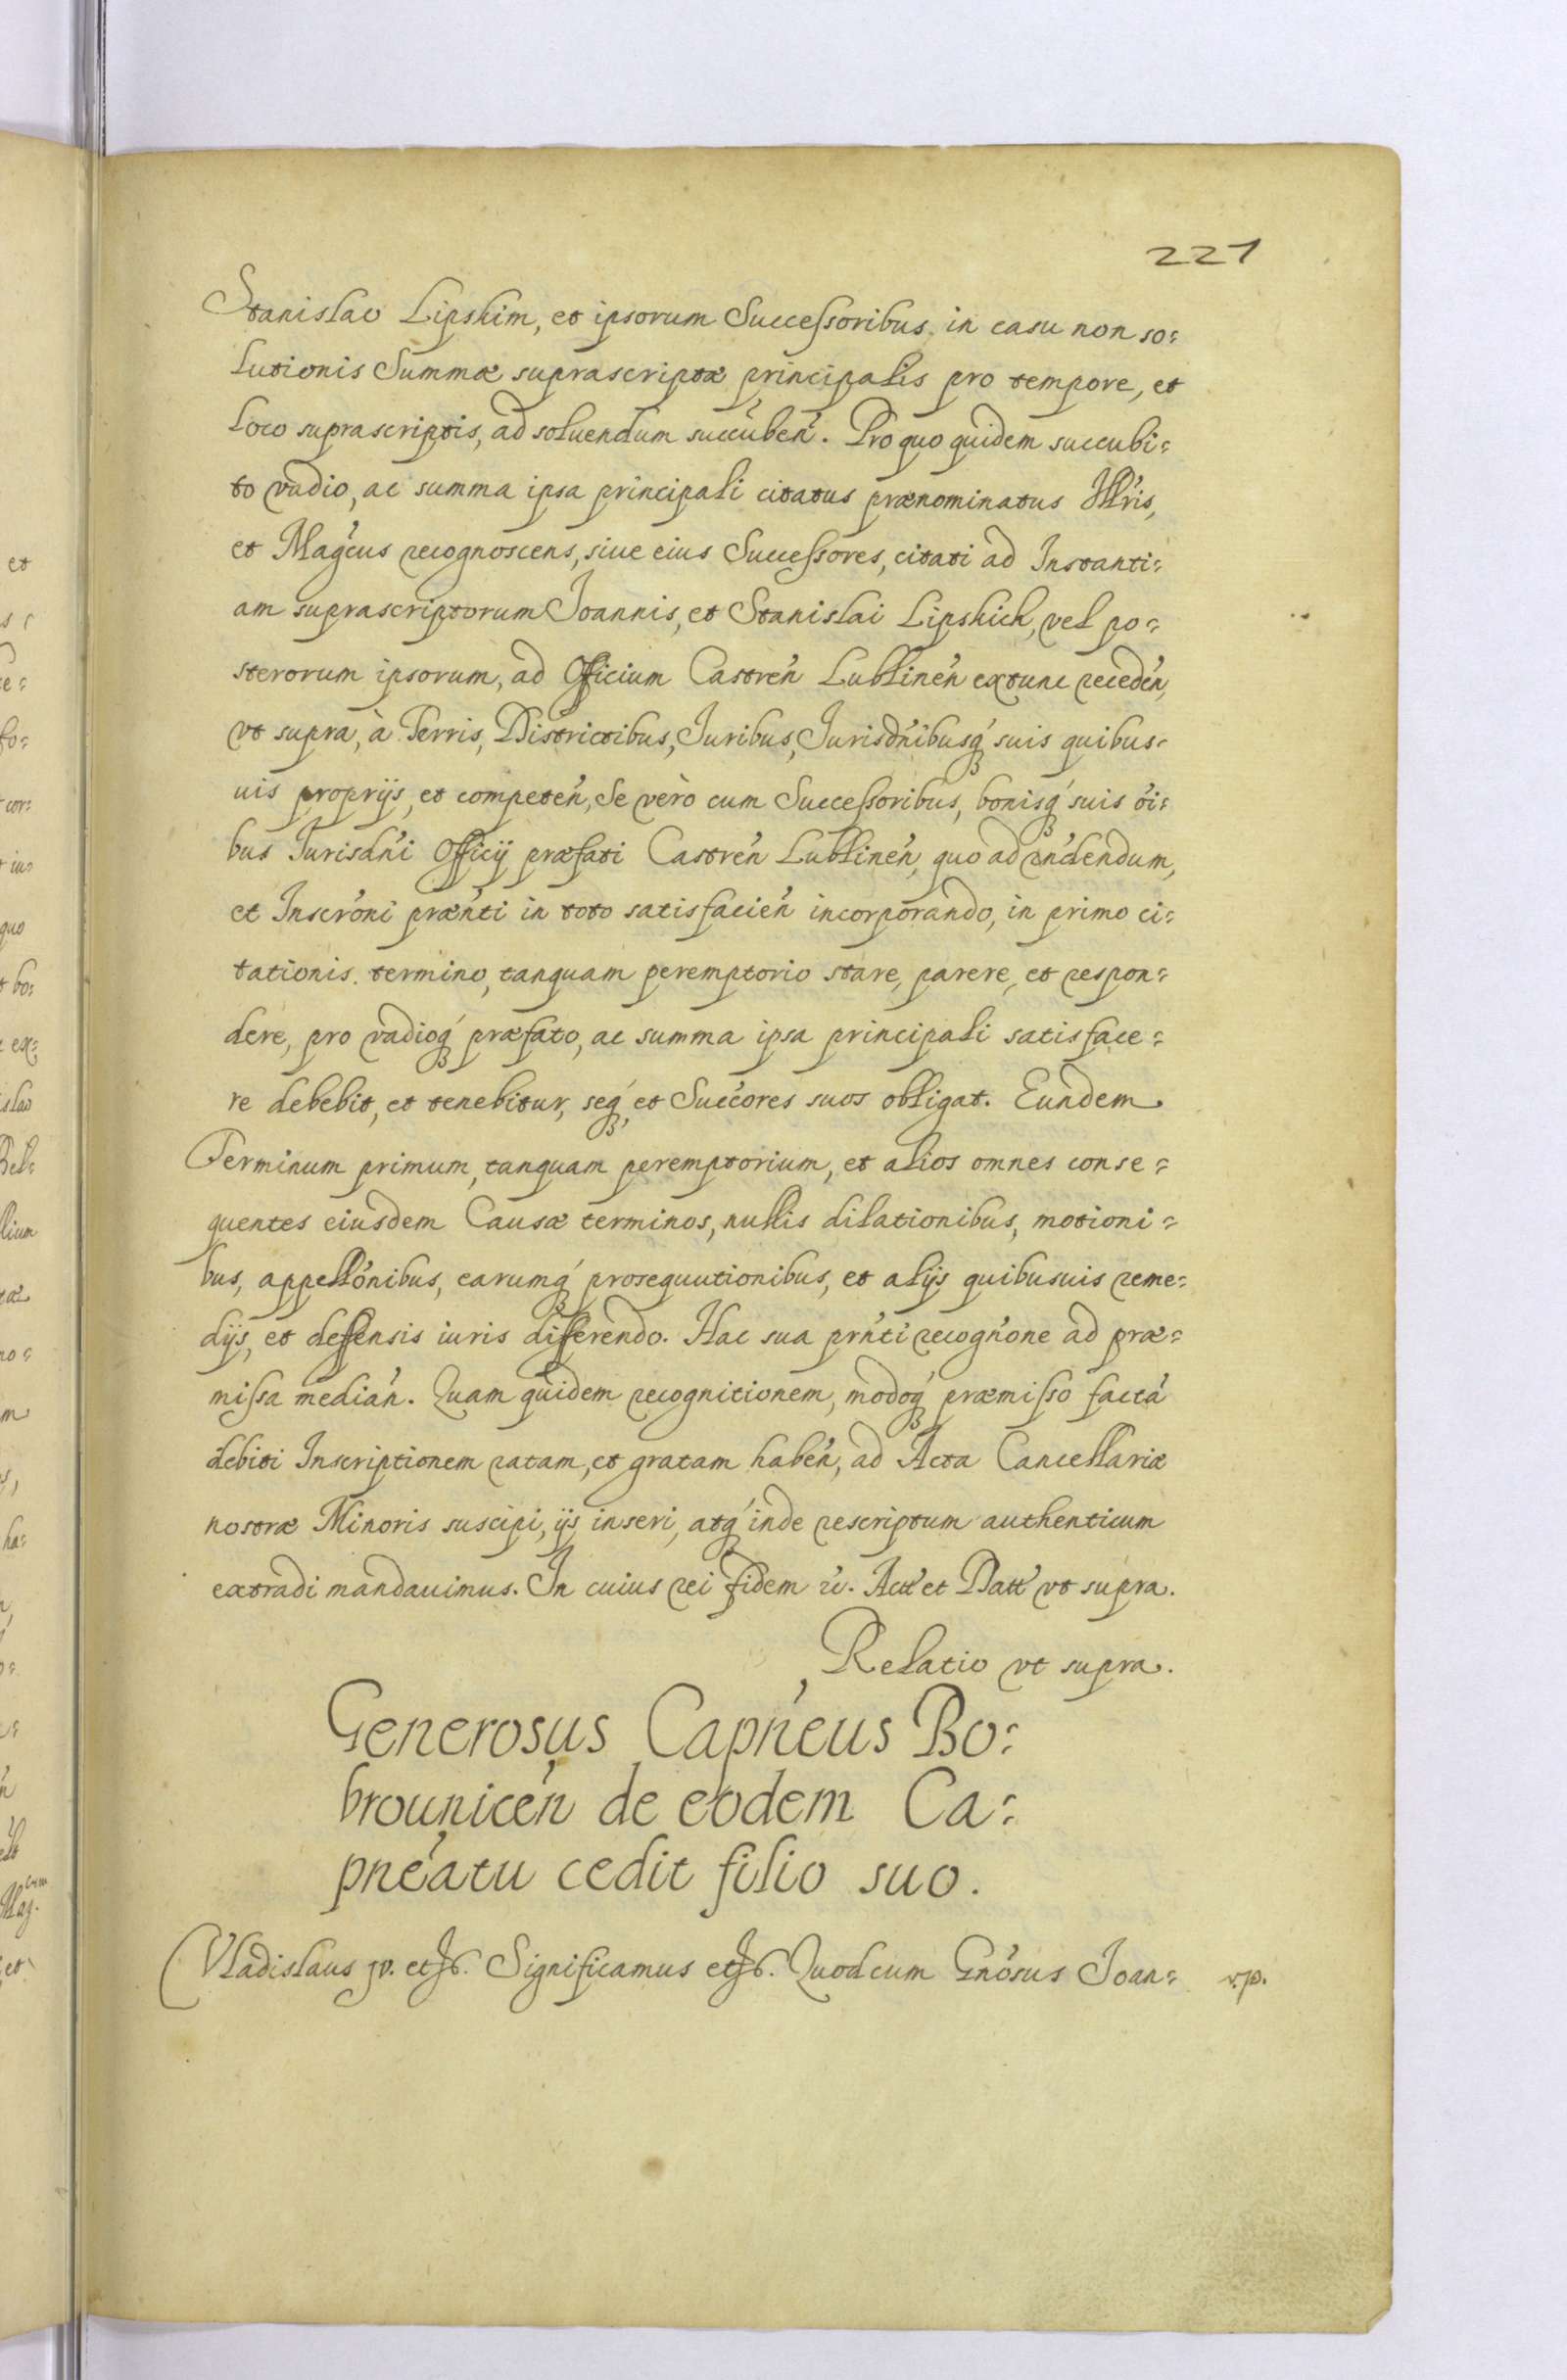 221
Stanislao Lipskim, et ipsorum Successoribus in casu non so:
lutionis Summæ suprascriptæ principalis pro tempore, et
loco suprascriptis, ad soluendum succubeń. Pro quo quidem succubi:
to vadio, ac summa ipsa principali citatus prænominatus Illris,
et Magcus recognoscens, siue eius Successores, citati ad Instanti:
am suprascriptorum Joannis, et Stanislai Lipskich, vel po:
sterorum ipsorum, ad Officium Castreń Lublineń extunc recedeń,
vt supra, à Terris, Districtibus, Juribus, Jurisdńibusq́ suis quibus:
uis proprijs, et competeń, Se verò cum Successoribus, bonisq́ suis oi:
bus Jurisdńi Officij præfati Castreń Lublineń, quo ad rńdendum,
et Inscrońi præńti in toto satisfacień incorporando, in primo ci:
tationis termino, tanquam peremptorio stare, parere, et respon:
dere, pro vadioq́ præfato, ac summa ipsa principali satisface:
re debebit, et tenebitur, seq́, et Succores suos obligat. Eundem
Terminum primum, tanquam peremptorium, et alios omnes conse:
quentes eiusdem Causæ terminos, nullis dilationibus, motioni:
bus, appellonibus, earumq́ prosequutionibus, et alijs quibusuis reme:
dijs, et deffensis iuris differendo. Hac sua prńti recogńone ad præ:
missa mediań. Quam quidem recognitionem, modoq́ præmisso factá
debiti Inscriptionem ratam, et gratam habeń, ad Acta Cancellariæ
nostræ Minoris suscipi, ijs inseri, atq́ inde rescriptum authenticum
extradi mandauimus. In cuius rei fidem &. Act et Datt vt supra.
Relatio vt supra.
Generosus Capńeus Bo:
brouniceń de eodem Ca:
pneátu cedit filio suo.
Vladislaus jv. et Significamus et Quod cum Gnosus Joan: v.p.